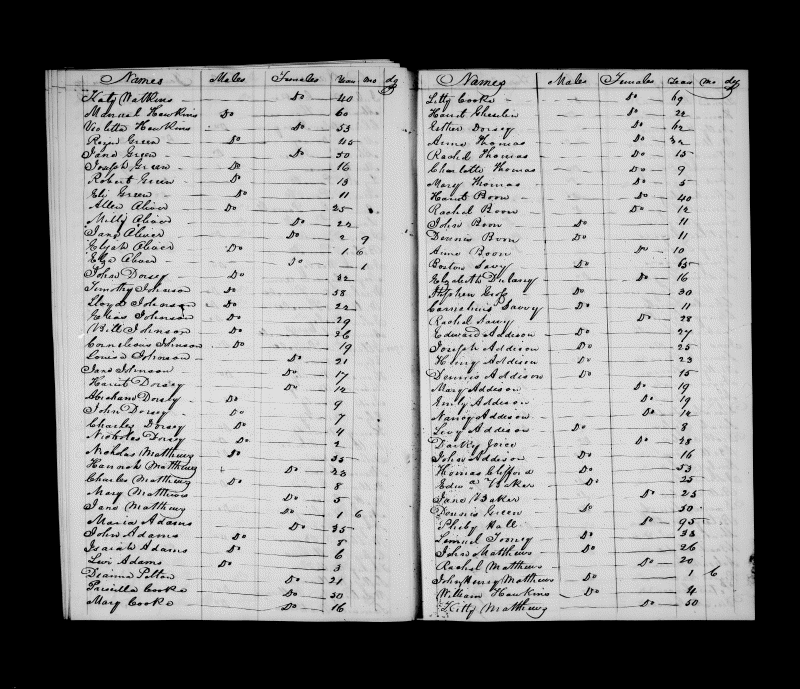 Names Males Females Years Mo dys
Katy Watkins Do 40
Manual Hawkins Do 60
Violetta Hawkins Do 53
Roger Green Do 45
Jane Green Do 50
Joseph Green Do 16
Robert Green Do 13
Eli Green Do 11
Allen Aliver Do 25
Milly Aliver Do 22
Jane Aliver Do 2 9
Elijah Aliver Do 1 6
Eliza Aliver Do 1
John Dorsey Do 32
Timothy Johnson Do 58
Lloyd Johnson Do 22
Johnson Do 29
Will Johnson Do 26
Cornelious Johnson Do 19
Louisa Johnson Do 21
Jane Johnson Do 17
Harriet Dorsey Do 12
Abraham Dorsey Do 9
John Dorsey Do 7
Charles Dorsey Do 4
Nicholas Dorsey Do 2
Nicholas Matthews Do 35
Hannah Matthews Do 23
Charles Matthews Do 8
Mary Matthews Do 5
Jane Matthews Do 1 6
Maria Adams Do 35
John Adams Do 8
Isaiah Adams Do 6
Levi Adams Do 3
Deanna Do 21
Priscilla Cooke Do 30
Mary Cooke Do 16
Names Males Females Years Mo dys
Letty Cooke Do 69
Do 22
Esther Dorsey Do 62
Anna Thomas Do 32
Rachel Thomas Do 15
Charlotte Thomas Do 9
Mary Thomas Do 5
Harriet Boon Do 40
Rachel Boon Do 12
John Boon Do 11
Dennis Boon Do 11
Anna Boon Do 10
Boston Savy Do 65
Elizabeth Dulany Do 16
Stephen Do 30
Cornelius Savvy Do 11
Rachel Savy Do 28
Edward Addison Do 27
Joseph Addison Do 25
Henry Addison Do 23
Dennis Addison Do 15
Mary Addison Do 19
Emily Addison Do 19
Nancy Addison Do 12
Levy Addison Do 8
Darky Joice Do 28
John Addison Do 16
Thomas Clifford Do 53
Edwd Baker Do 25
Jane Baker Do 25
Dennis Green Do 50
Pheby Hall Do 95
Semuel Toney Do 33
John Matthews Do 26
Rachel Matthews Do 20
John Henry Matthews Do 1 6
William Hawkins Do 4
Kitty Matthews Do 50